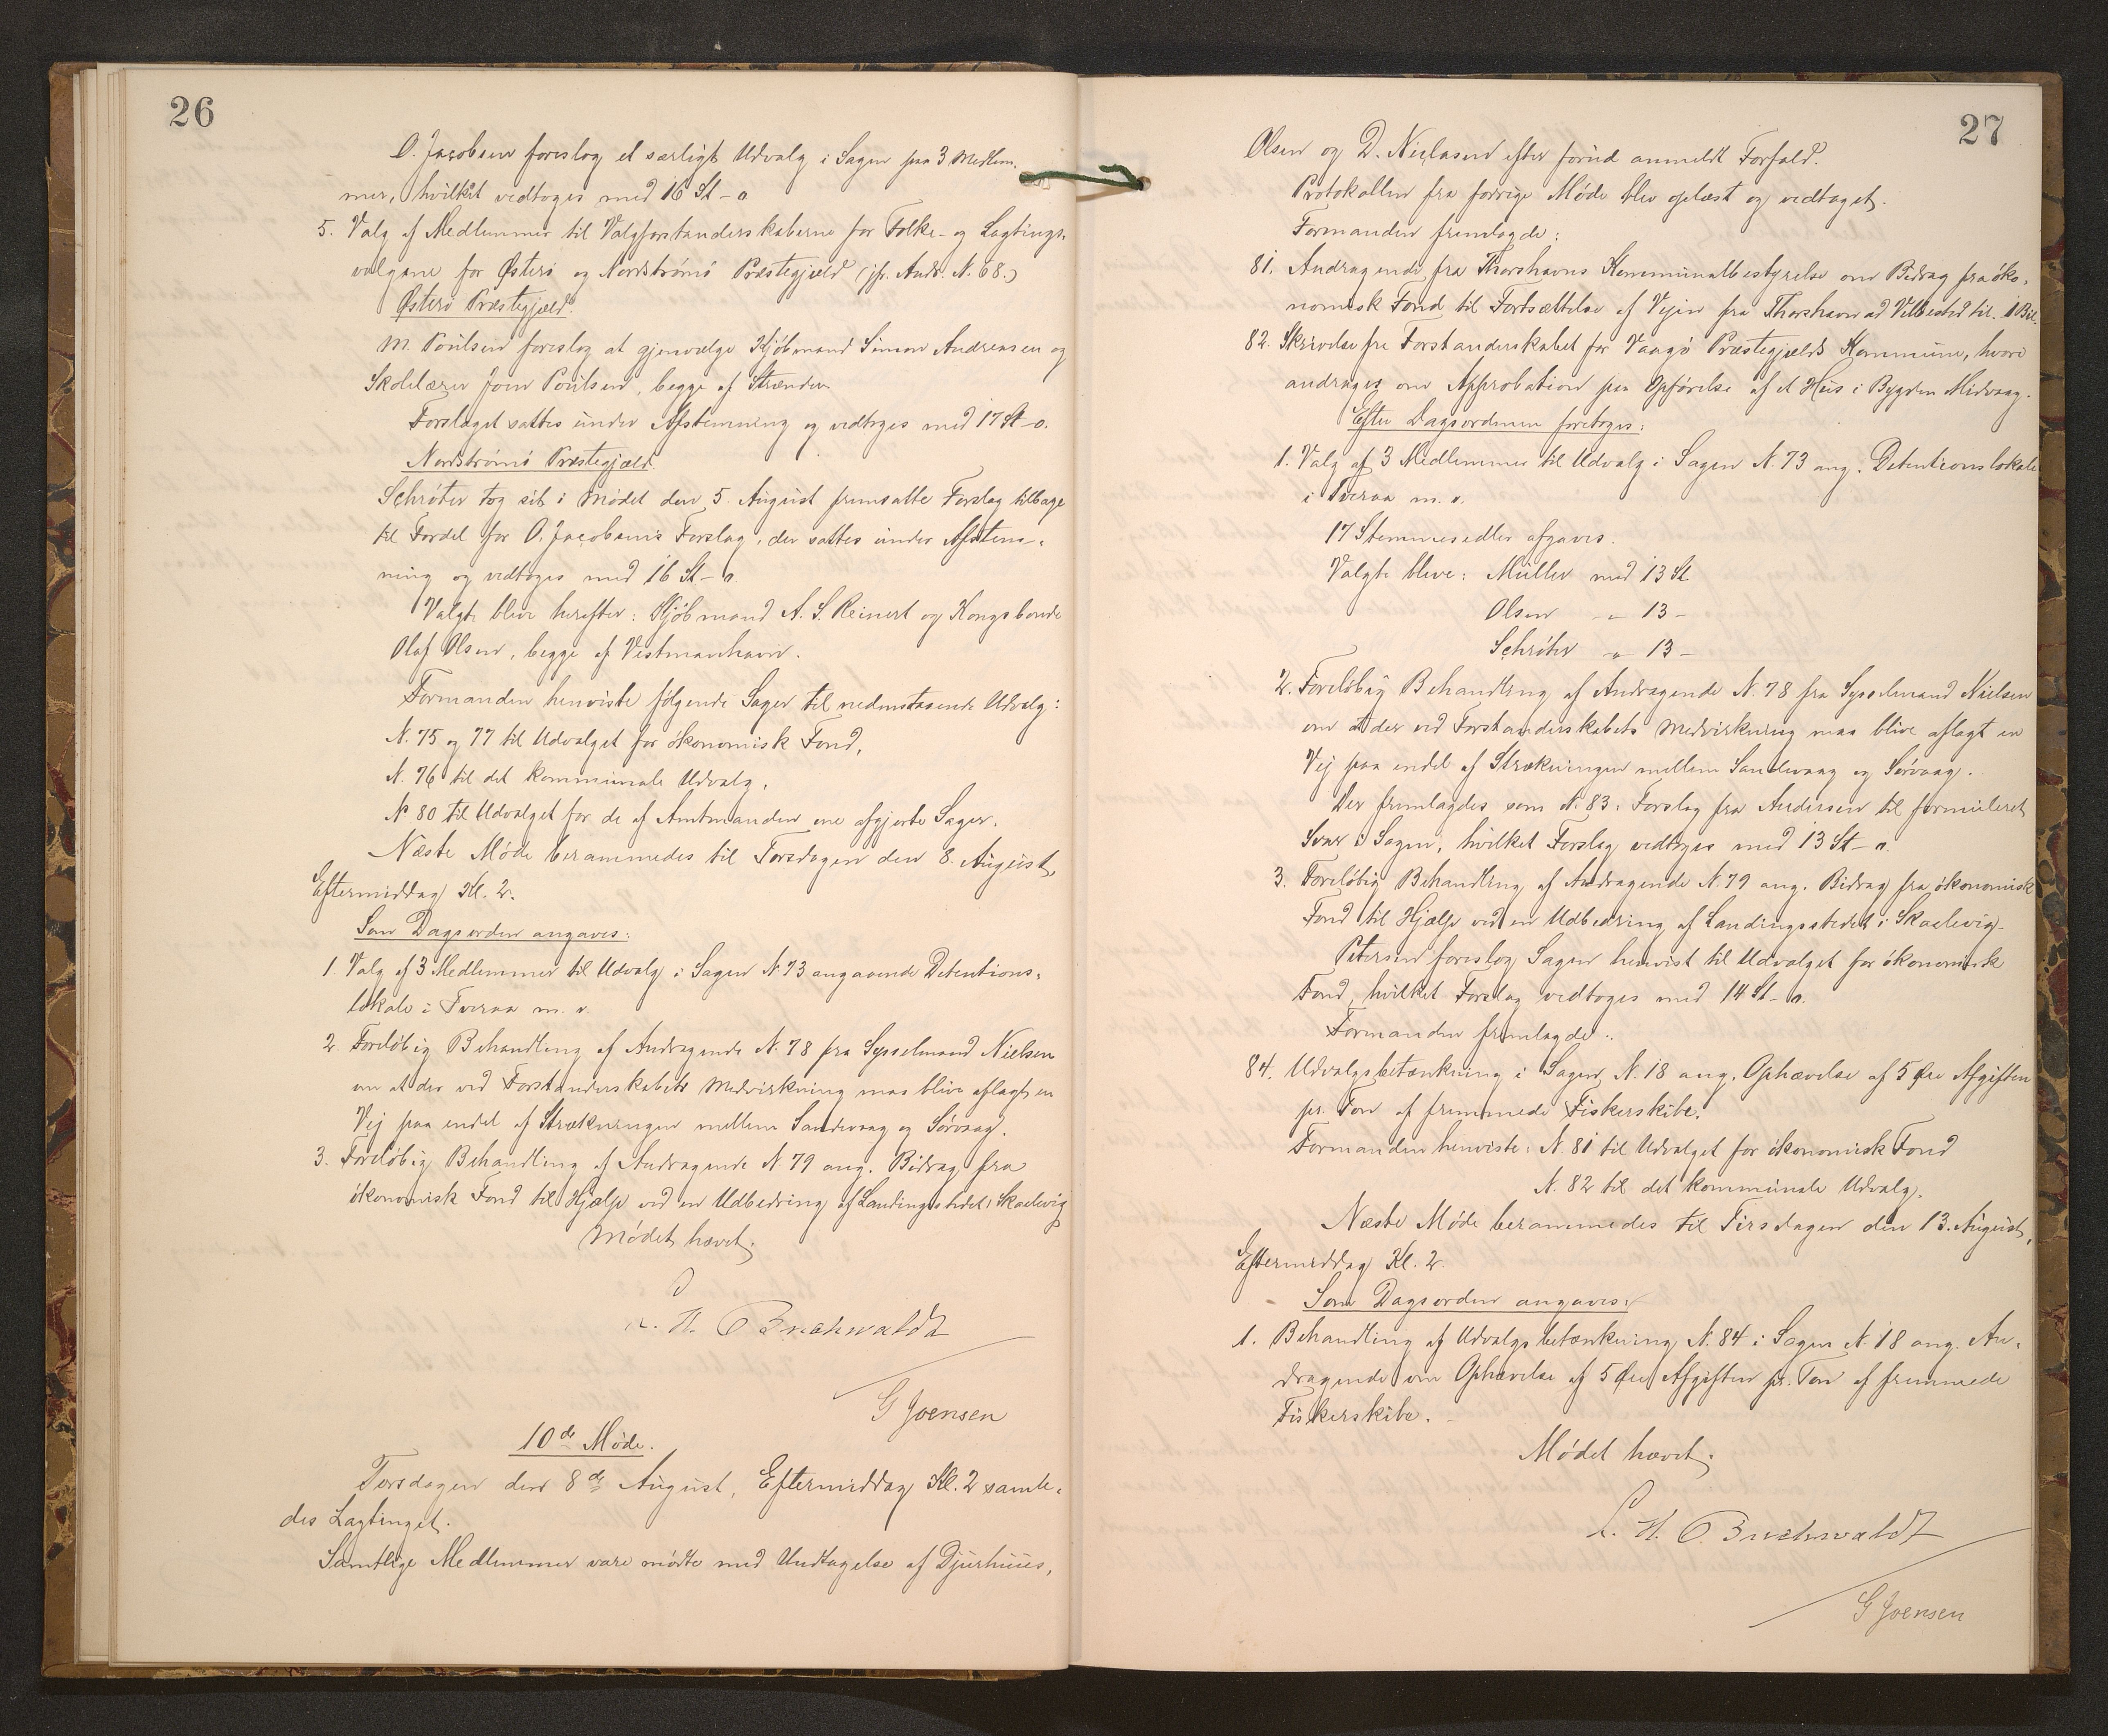 26
O. Jacobsen foreslog et særligt Udvalg i Sagen paa 3 Medlem-
mer, hvilket vedtoges med 16 St - o
5. Valg af Medlemmer til Valgforstanderskaberne for Folke- og Lagtings-
valgene for Østerø og Nordstrømø Præstegjæld (jfr. Andr. N. 68.)
Østerø Præstegjæld.
M. Poulsen foreslog at gjenvælge Kjøbmand Simon Andreasen og
Skolelærer Joen Poulsen, begge af Strænder.
Forslaget sattes under Afstemning og vedtoges med 17 St - o.
Nordstrømø Præstegjæld.
Schrøter tog sit i Mødet den 5. August fremsatte Forslag tilbage
til Fordel for O. Jacobsens Forslag, der sattes under Afstem-
ning og vedtoges med 16 St - o.
Valgte blive herefter: Kjøbmand A. S. Reinert og Kongsbonde
Olaf Olsen, begge af Vestmanhavn.
Formanden henviste følgende Sager til nedenstaaende Udvalg:
N. 75 og 77 til Udvalget for økonomisk Fond,
N. 76 til det kommunale Udvalg,
N. 80 til Udvalget for de af Amtmanden ene afgjorte Sager.
Næste Møde berammedes til Torsdagen den 8. August,
Eftermiddag Kl. 2.
Som Dagsorden angaves:
1. Valg af 3 Medlemmer til Udvalg i Sagen N. 73 angaaende Detentions-
lokale i Tveraa m. v.
2. Foreløbig Behandling af Andragende N. 78 fra Sysselmand Nielsen
om at der ved Forstanderskabets Medvirkning maa blive aflagt en
Vej paa endel af Strækningen mellem Sandevaag og Sørvaag.
3. Foreløbig Behandling af Andragende N. 79 ang. Bidrag fra
økonomisk Fond til Hjælp ved en Udbedring af Landingsstedet i Skaelevig
Mødet hævet.
L. H. Buchwaldt
G Joensen
10de Møde.
Torsdagen den 8de August, Eftermiddag Kl. 2 samle-
des Lagtinget.
Samtlige Medlemmer vare mødte med Undtagelse af Djurhuus,
27
Olsen og D. Niclasen efter forud anmeldt Forfald.
Protokollen fra forrige Møde blev oplæst og vedtaget.
Formanden fremlagde:
81. Andragende fra Thorshavns Kommunalbestyrelse om Bidrag fra øko-
nomisk Fond til Fortsættelse af Vejen fra Thorshavn ad Velbestad til. 1 Bil.
82. Skrivelse fra Forstanderskabet for Vaagø Præstegjælds Kommune, hvori
andrages om Approbation paa Opførelse af et Hus i Bygden Midvaag.
Efter Dagsordenen foretoges:
1. Valg af 3 Medlemmer til Udvalg i Sagen N. 73 ang. Detentionslokale
i Tveraa m. v.
17 Stemmesedler afgaves.
Valgte bleve: Müller med 13 St
Olsen - " - 13 -
Schrøter - " - 13 -
2. Foreløbig Behandling af Andragende N. 78 fra Sysselmand Nielsen
om at der ved Forstanderskabets Medvirkning maa blive aflagt en
Vej paa endel af Strækningen mellem Sandevaag og Sørvaag.
Der fremlagdes som N. 83: Forslag fra Andersen til formuleret
Svar i Sagen, hvilket Forslag vedtoges med 13 St - o.
3. Foreløbig Behandling af Andragende N. 79 ang. Bidrag fra økonomisk
Fond til Hjælp ved en Udbedring af Landingsstedet i Skaelevig.
Petersen foreslog Sagen henvist til Udvalget for økonomisk
Fond, hvilket Forslag vedtoges med 14 St - o.
Formanden fremlagde:
84. Udvalgsbetænkning i Sagen N. 18 ang. Ophævelse af 5 Øre Afgiften
pr. Ton af fremmede Fiskerskibe.
Formanden henviste: N. 81 til Udvalget for økonomisk Fond
N. 82 til det kommunale Udvalg.
Næste Møde berammedes til Tirsdagen den 13. August,
Eftermiddag Kl. 2.
Som Dagsorden angaves:
1. Behandling af Udvalgsbetænkning N. 84 i Sagen N. 18 ang. An-
dragende om Ophævelse af 5 Øre Afgiften pr. Ton af fremmede
Fiskerskibe.
Mødet hævet.
L. H. Buchwaldt
G Joensen